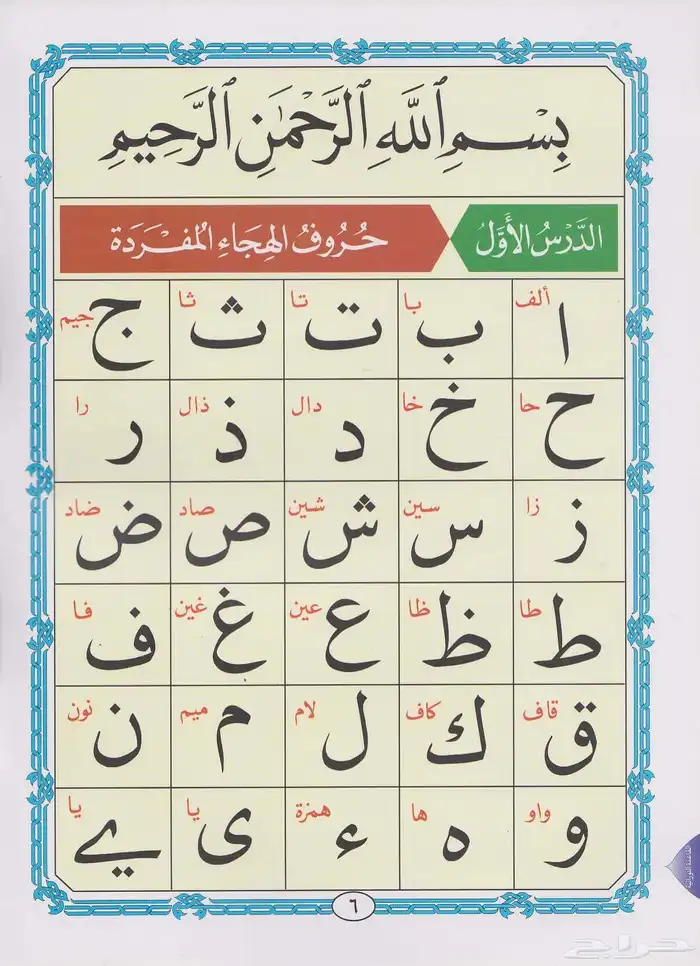 بِسْمِ ٱللَّهِ ٱلرَّحْمَٰنِ ٱلرَّحِيمِ
الدَّرْسُ الأَوَّلُ حُرُوفُ الهِجَاءِ المُفْرَدَة
ألف ا با ب تا ت ثا ث جيم ج
حا ح خا خ دال د ذال ذ را ر
زا ز سين س شين ش صاد ص ضاد ض
طا ط ظا ظ عين ع غين غ فا ف
قاف ق كاف ك لام ل ميم م نون ن
واو و ها ه همزة ء يا ى يا ے
٦
القاعدة النورانية
حراج